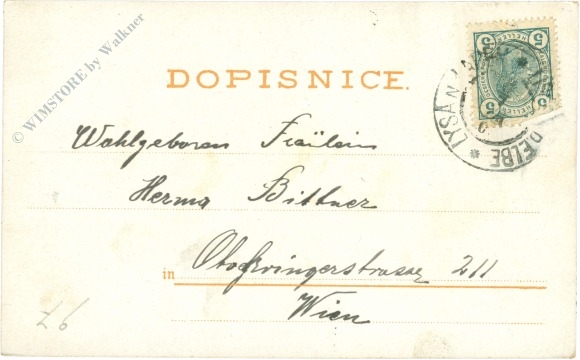 © WIMSTORE by Walkner
DOPISNICE.
5 HELLER 5
LYSA N
D ELBE *
Wohlgeboren Fräulein
Herma Bittner
in
211
Wien